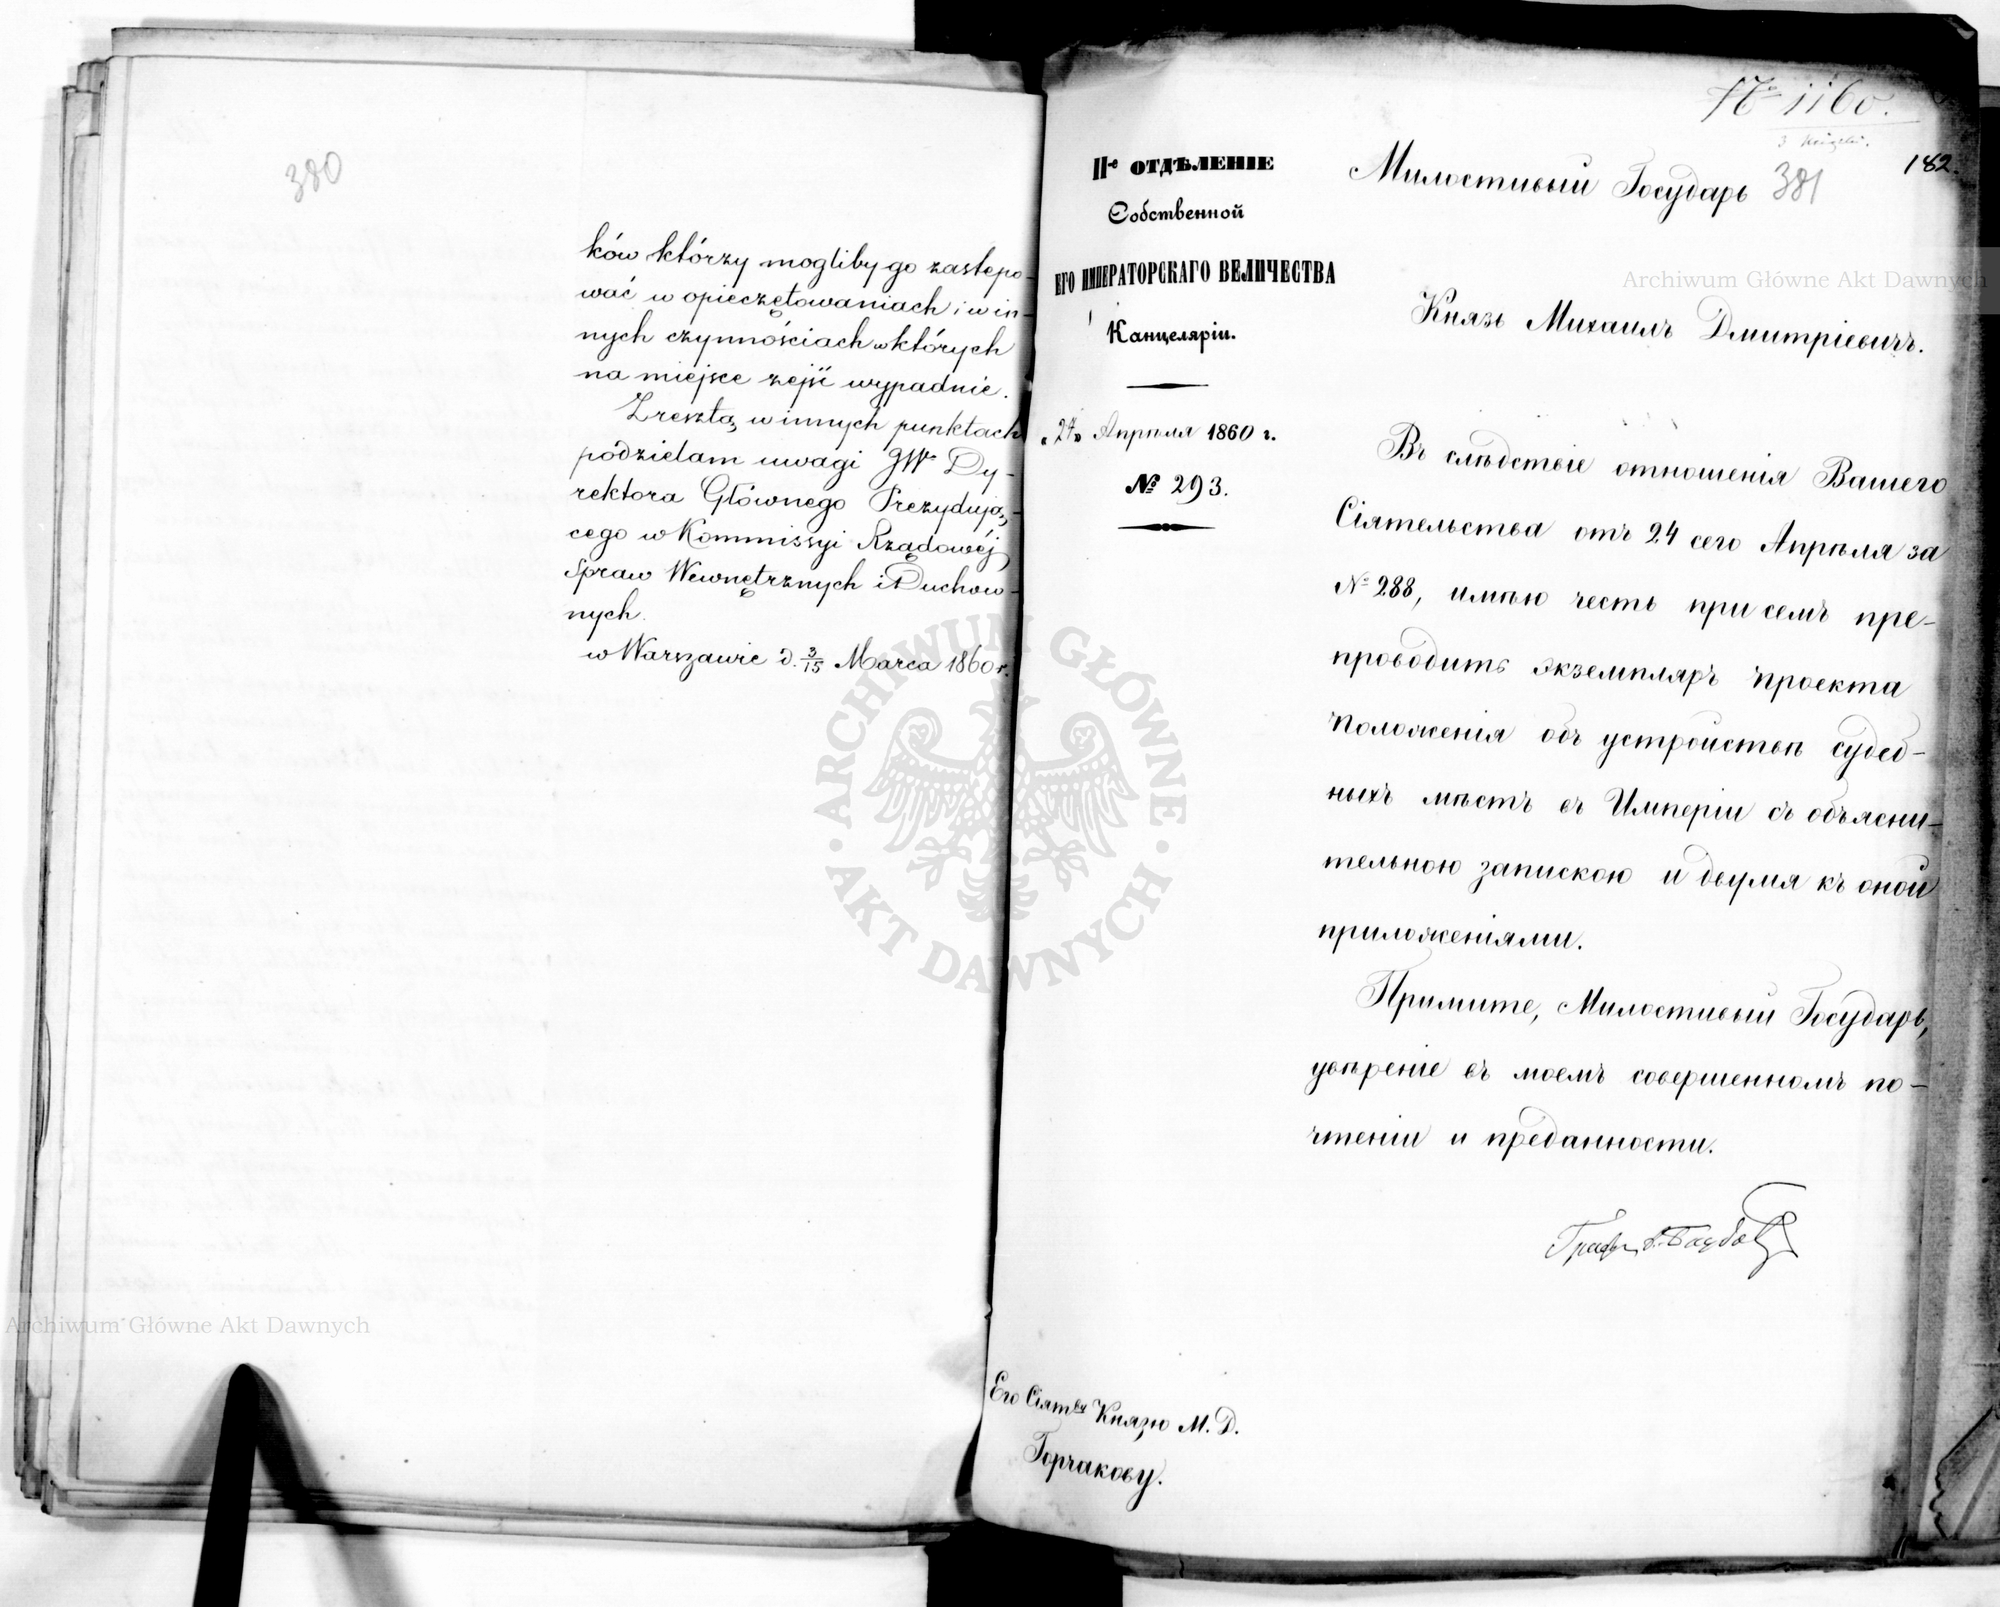 380
ków którzy mogliby go zastępo-
wać w opieczętowaniach i w in-
nych czynnościach w których
na miejsce zejść wypadnie.
Zresztą w innych punktach
podzielam uwagi JW. Dy-
rektora Głównego Prezydują-
cego w Kommissyi Rządowéj
Spraw Wewnętrznych i Duchow-
nych.
w Warszawie d. 3/15 Marca 1860 r.
№ 1160.
182.
381
IIе ОТДѢЛЕНІЕ
Собственной
ЕГО ИМПЕРАТОРСКАГО ВЕЛИЧЕСТВА
Канцеляріи.
„27" Апрѣля 1860 г.
№ 293.
Милостивый Государь
Князь Михаилъ Дмитріевичъ.
Въ слѣдствіе отношенія Вашего
Сіятельства отъ 24 сего Апрѣля за
№ 288, имѣю честь при семъ пре-
проводить экземпляръ проекта
положенія объ устройствѣ судеб-
ныхъ мѣстъ въ Имперіи съ объясни-
тельною запискою и двумя къ оной
приложеніями.
Примите, Милостивый Государь,
увѣреніе въ моемъ совершенномъ по-
чтеніи и преданности.
Графъ Д. Блудовъ
Его Сіятву Князю М. Д.
Горчакову.
Archiwum Główne Akt Dawnych
Archiwum Główne Akt Dawnych
ARCHIWUM GŁÓWNE
AKT DAWNYCH